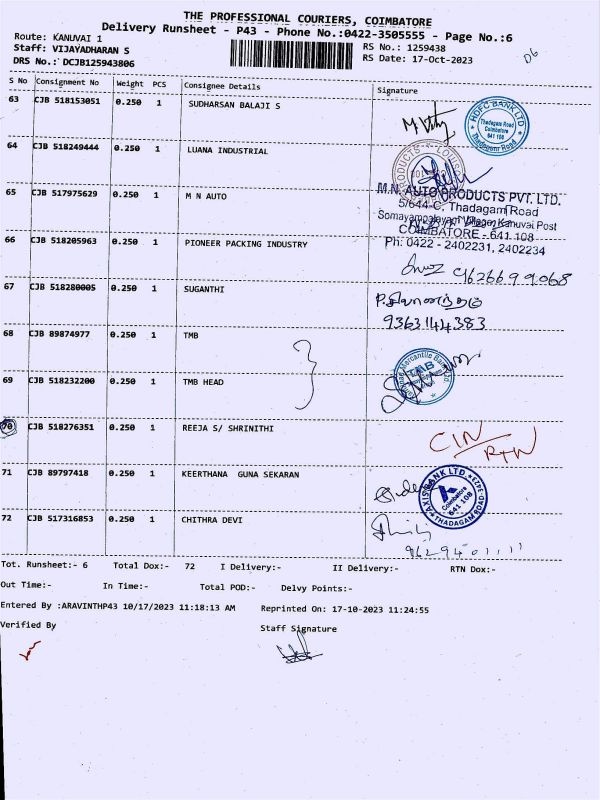 THE PROFESSIONAL COURIERS, COIMBATORE
Delivery Runsheet - P43 - Phone No.:0422-3505555 - Page No.:6
Route: KANUVAI 1
Staff: VIJAYADHARAN S
DRS No.: DCJB125943806
RS No.: 1259438
RS Date: 17-Oct-2023
D6
S No Consignment No Weight PCS Consignee Details Signature
63 CJB 518153051 0.250 1 SUDHARSAN BALAJI S
HDFC BANK LTD
Thadagam Road
Coimbatore
641 108
Thadagam Road
64 CJB 518249444 0.250 1 LUANA INDUSTRIAL
65 CJB 517975629 0.250 1 M N AUTO
M.N. AUTO PRODUCTS PVT. LTD.
5/644-C, Thadagam Road
Somayampalayam Village, Kanuvai Post
COIMBATORE - 641 108
Ph: 0422 - 2402231, 2402234
66 CJB 518205963 0.250 1 PIONEER PACKING INDUSTRY
9626699068
67 CJB 518280005 0.250 1 SUGANTHI
9363144383
68 CJB 89874977 0.250 1 TMB
69 CJB 518232200 0.250 1 TMB HEAD
TMB
70 CJB 518276351 0.250 1 REEJA S/ SHRINITHI
CIN
RTN
71 CJB 89797418 0.250 1 KEERTHANA GUNA SEKARAN
AXIS BANK LTD.
Coimbatore
641 108
72 CJB 517316853 0.250 1 CHITHRA DEVI
Tot. Runsheet:- 6 Total Dox:- 72 I Delivery:- II Delivery:- RTN Dox:-
Out Time:- In Time:- Total POD:- Delvy Points:-
Entered By :ARAVINTHP43 10/17/2023 11:18:13 AM Reprinted On: 17-10-2023 11:24:55
Verified By Staff Signature